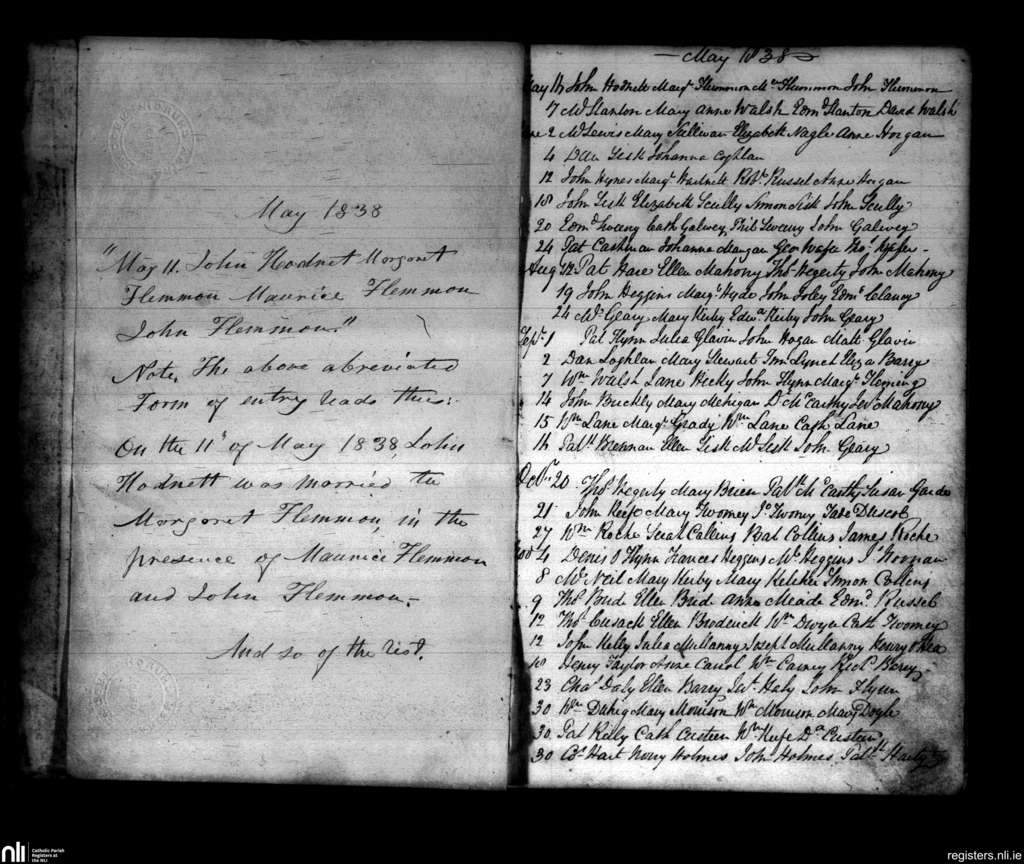 May 1838
"May 11. John Hodnet Margaret
Flemmon Maurice Flemmon
John Flemmon"
Note, The above abreviated
Form of entry reads thus:
On the 11th of May 1838, John
Hodnett was married to
Margaret Flemmon, in the
presence of Maurice Flemmon
and John Flemmon.
And so of the rest.
May 1838
May 11 John Hodnett Margt Flemmon Mce Flemmon John Flemmon
7 Ml Stanton Mary Anne Walsh Edmd Stanton David Walsh
2 Ml Lewis Mary Sullivan Elizabeth Nagle Anne Horgan
4 Dan Sisk Johanna Coghlan
12 John Hynes Margt Hartnett Robt Russel Anne Horgan
18 John Sisk Elizabeth Scully Simon Sisk John Scully
20 Edmd Tweeny Cath Galwey Phil Tweeny John Galwey
24 Pat Cashman Johanna Mangan Geo
Aug 12 Pat Hare Ellen Mahony Thos Hegerty John Mahony
19 John Heggins Margt Hyde John Foley Edmd Clancy
24 Ml Geary Mary Kirby Edwd Kirby John Geary
Sept 1 Pat Flynn Julia Glavin John Hogan Matt Glavin
2 Dan Loghlan Mary Stewart Tim Lynch Eliza Barry
7 Wm Walsh Jane Hecky John Flynn Margt Fleming
14 John Buckly Mary Mehigan D McCarthy Jer Mahony
15 Wm Lane Margt Grady Wm Lane Cath Lane
16 Patt Brennan Ellen Sisk Ml Sisk John Geary
Octr 20 Thos Hegerty Mary Brien Patt McCarthy Susan Garde
21 John Keefe Mary Twomey Js Twomy Driscol
27 Wm Roche Collins Collins James Roche
4 Denis O Flynn Frances Heggins Ml Heggins Js Noonan
8 Ml Neil Mary Kirby Mary Keleher Simon Collens
9 Thos Bride Ellen Bride Anne Meade Edmd Russel
12 Thos Cusack Ellen Broderick Wm Dwyer Cath Twomey
12 John Kelly Julia Mullanny Joseph Mullanny Henry O Hea
18 Henry Taylor Anne Carrol Wm Carney Richd Berry
23 Chas Daly Ellen Barry John Flynn
30 Wm Duhig Mary Morrison Wm Morrison Mary Doyle
30 Pat Kelly Cath Creteen Wm Keefe Creteen
30 Hart Holmes John Holmes Patt
nli
Catholic Parish
Registers at
the NLI
registers.nli.ie